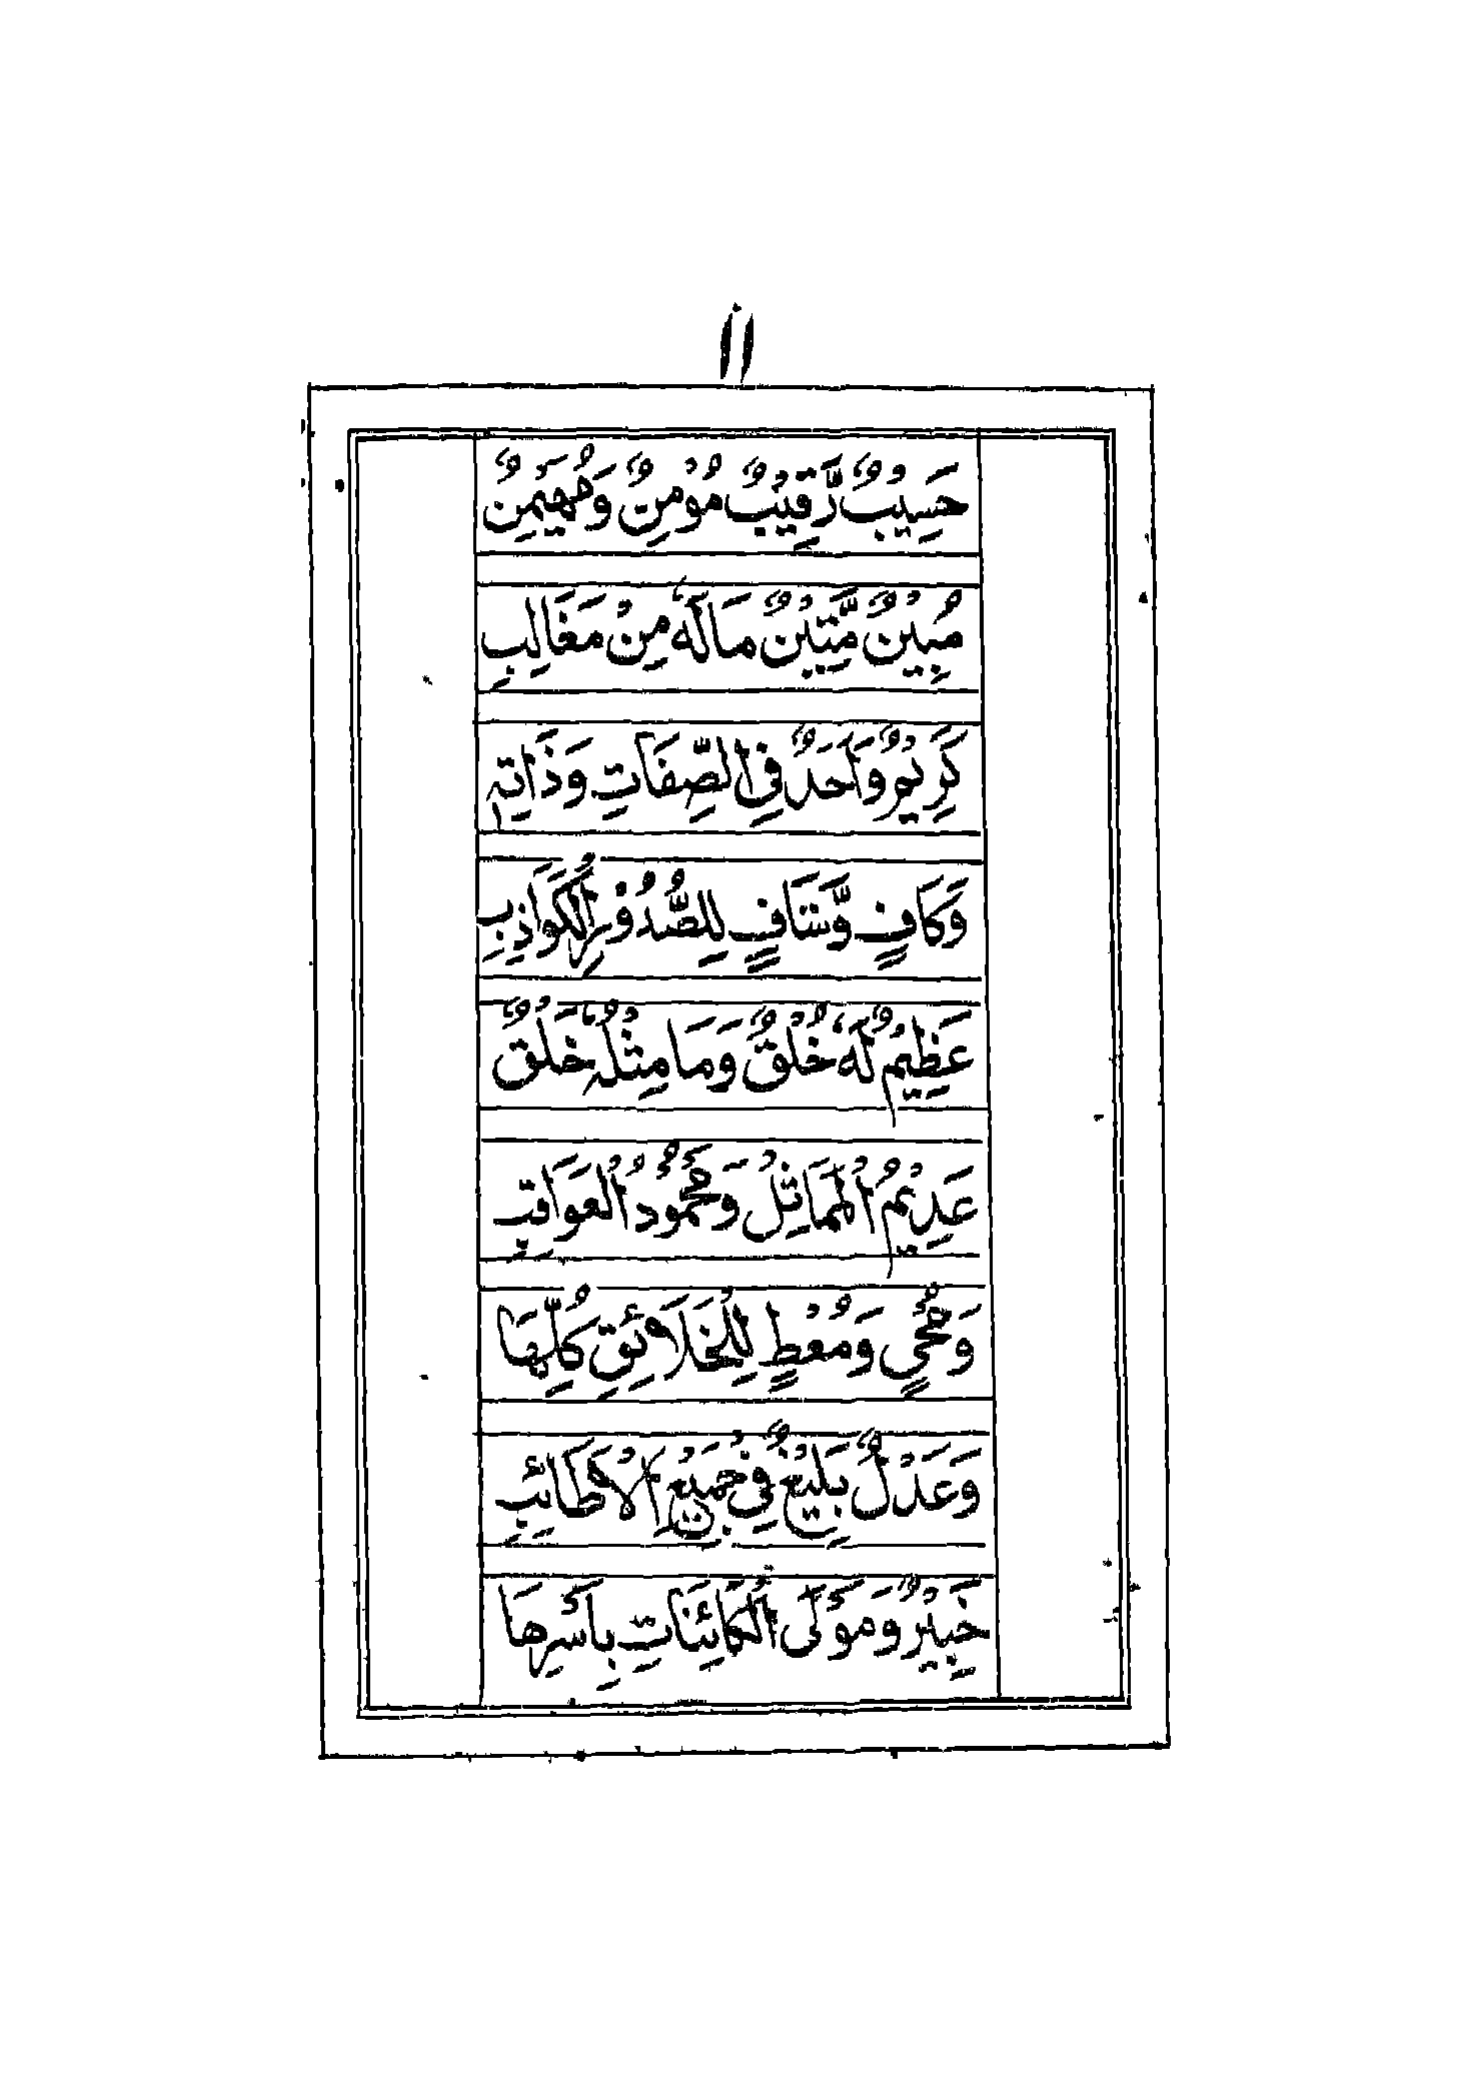 ۱۱
حَسِيْبٌ رَّقِيْبٌ مُؤْمِنٌ وَمُهَيْمِنٌ
مُبِيْنٌ مَّتِيْنٌ مَالَهٗ مِنْ مَغَالِبِ
كَرِيْمٌ وَاَحَدٌ فِي الصِّفَاتِ وَذَاتِهٖ
وَكَافٍ وَّشَافٍ لِلصُّدُوْرِ الْكَوَاذِبِ
عَظِيْمٌ لَهٗ خُلُقٌ وَمَا مِثْلُهٗ خَلْقٌ
عَدِيْمُ الْمَمَاثِلْ وَمَحْمُوْدُ الْعَوَاقِبِ
وَمُحْيٍ وَمُعْطٍ لِلْخَلَائِقِ كُلِّهَا
وَعَدْلٌ بَلِيْغٌ فِيْ جَمِيْعِ الْاَطَائِبِ
خَبِيْرٌ وَمَوْلَى الْكَائِنَاتِ بِاَسْرِهَا